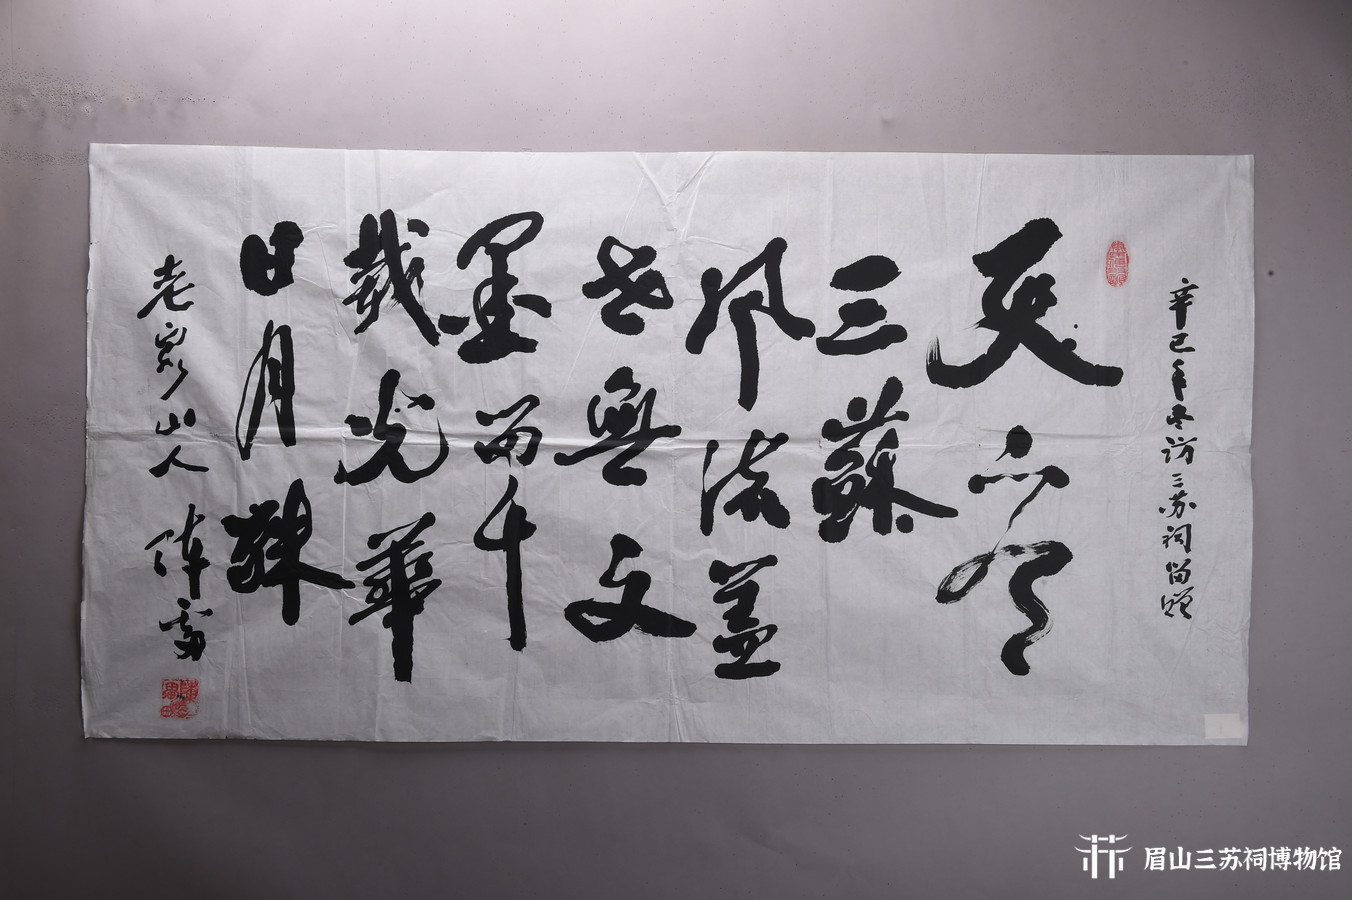 辛巳年冬访三苏祠留赠
三蘇
風流蓋
世無文
墨留千
載光華
日月
老 山人
眉山三苏祠博物馆